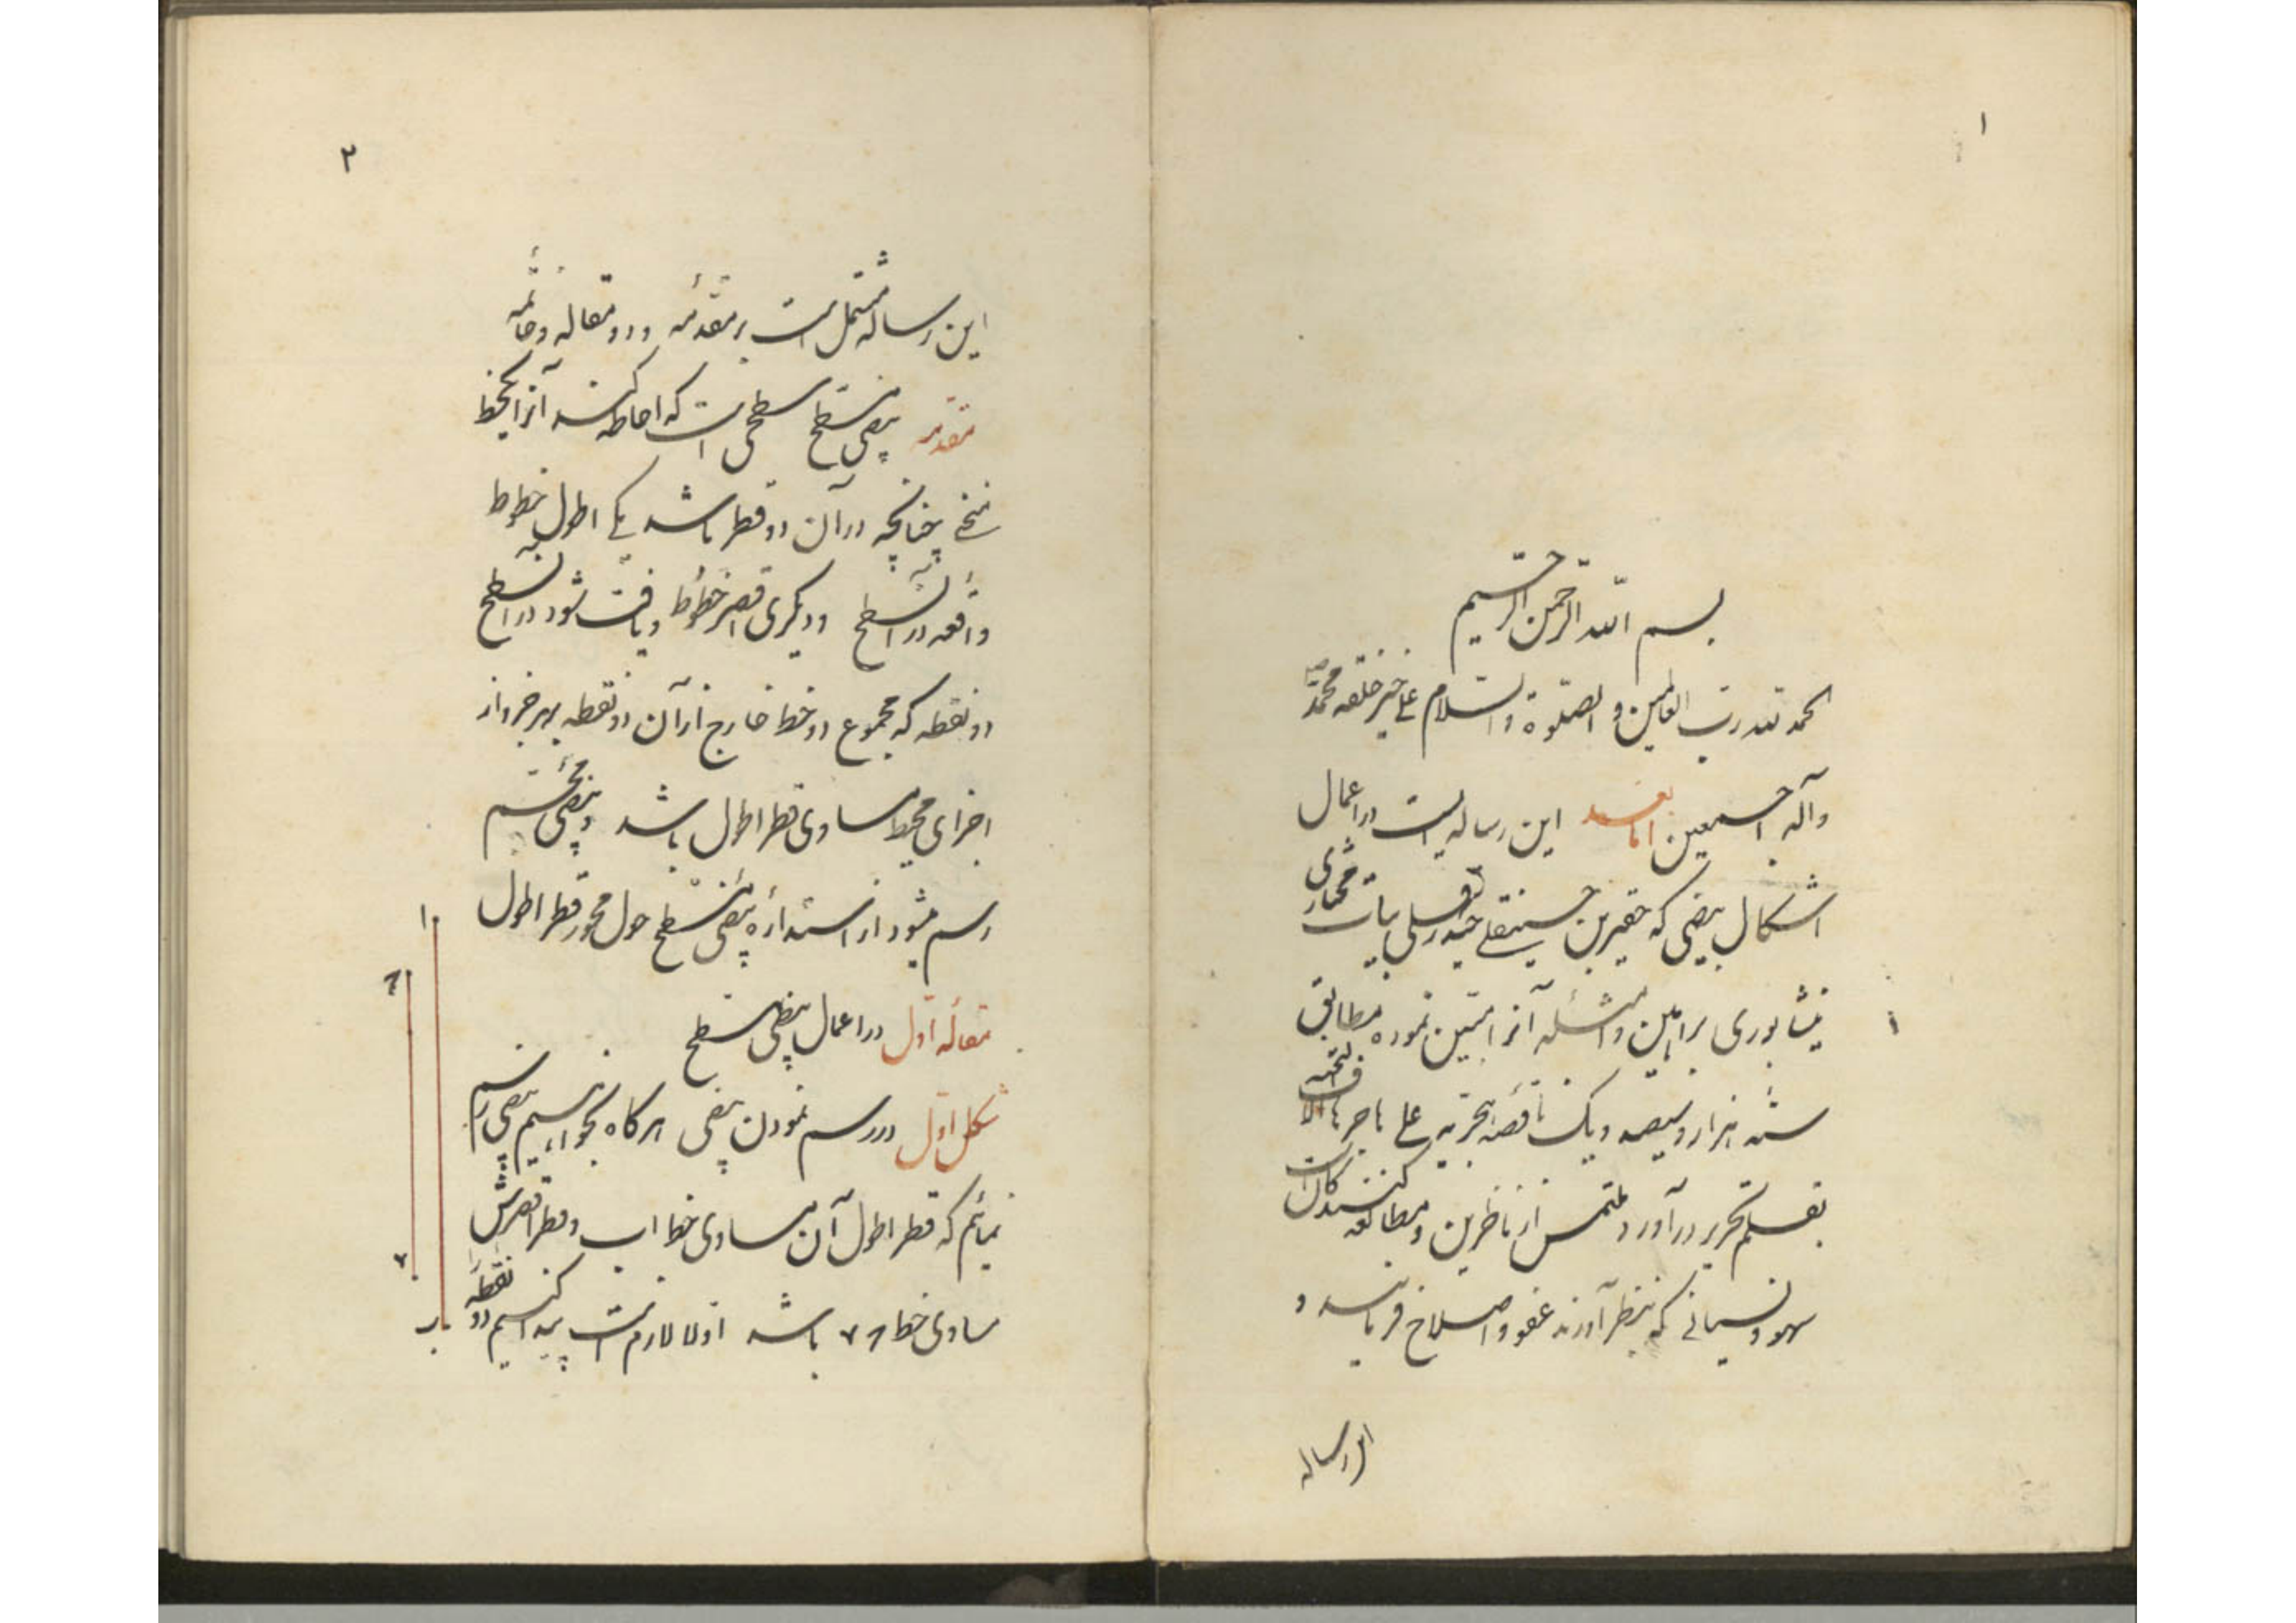 ۱
بسم الله الرحمن الرحیم
الحمد لله رب العالمین و الصلوة و السلام علی خیر خلقه محمد
وآله اجمعین اما بعد این رساله ایست در اعمال
اشکال بیضی که حقیر بن حسینقلی حیدرعلی بیات مختاری
نیشابوری براهین و امثله آنرا مبین نموده مطابق
سنه هزار و سیصد و یک ناقصه هجریه علی هاجرها الاف التحیه
بقلم تحریر در آورد ملتمس از ناظرین و مطالعه کنندگان آنست
سهو و نسیانی که بنظر آورند عفو و اصلاح فرمایند و
این رساله
۲
این رساله مشتمل است بر مقدمه و دو مقاله و خاتمه
مقدمه بیضی مسطح سطحی است که احاطه کند آنرا یکخط
منحنی چنانچه در آن دو قطر باشد یکی اطول خطوط
واقعه در آنسطح و دیگری اقصر خطوط و یافت شود در آنسطح
دو نقطه که مجموع دو خط خارج از آن دو نقطه بهر جزء از
اجزای محیط مساوی قطر اطول باشد و بیضی مجسم
رسم میشود از استداره بیضی مسطح حول محور قطر اطول
مقاله اول در اعمال بیضی مسطح
شکل اول در رسم نمودن بیضی هرگاه بخواهیم بیضی رسم
نمائیم که قطر اطول آن مساوی خط اب و قطر اقصرش
مساوی خط ح د باشد اولا لازم است پیدا کنیم دو نقطه
ا
ح
د
ب